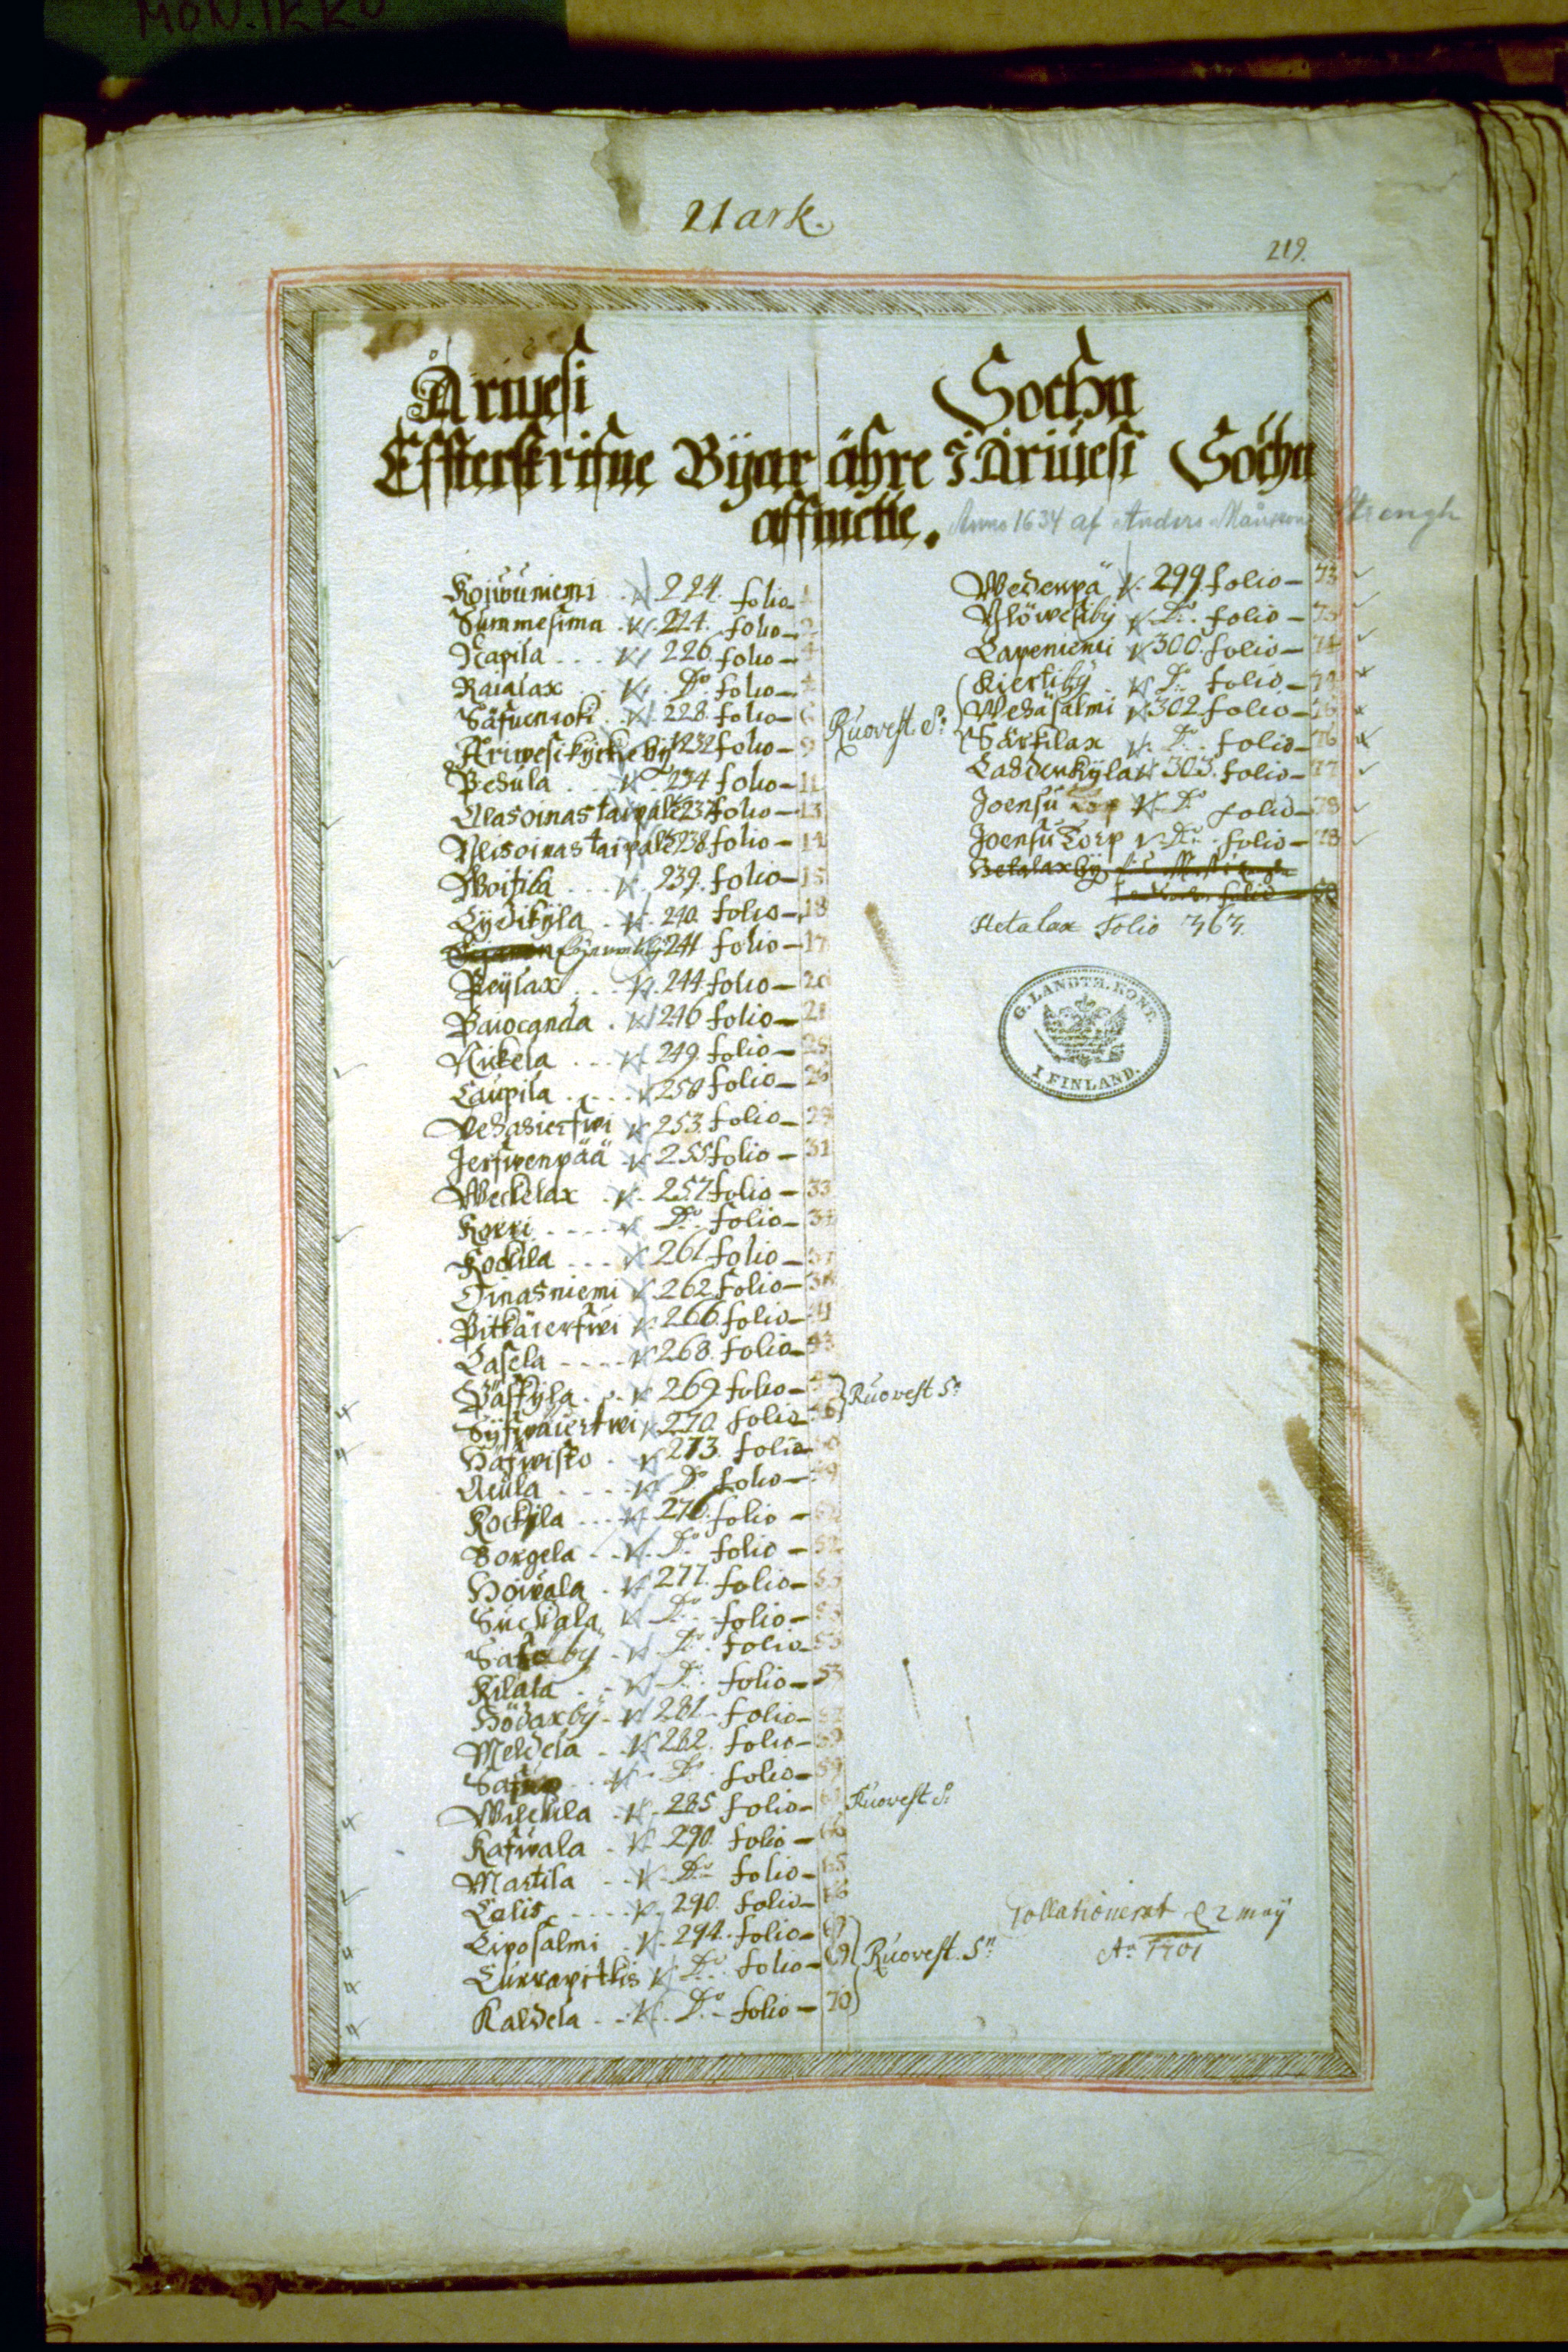 MON. IKKU
21 ark.
219.
Åriwesi Sochn
Effterskrifne Bÿar ähre i Åriuesi Sochn
affmette. Anno 1634 af Anders Månsson Strengh
Koiwuniemi 224. folio
Summesima 224. folio
Napila 226. folio
Raialax Do. folio
Säfuenioki 228. folio
Äriwesi kÿckebÿ 232 folio 9
Pedula 234 folio 11
Alasoinastaipale 237 folio 13
Ylisoinastaipale 238. folio 14
Woitila 239. folio 15
Lÿdikÿla 240. folio 18
241 folio 17
Peÿlax 244 folio 20
Paiocanda 246 folio 21
Nickela 249. folio 25
Laupila 250 folio 26
Vehasierfwi 253. folio 29
Jerfwenpää 255 folio 31
Weckelax 257 folio 33
Korri Do. folio 34
Kockila 261 folio
Oinasniemi 262 folio
Pitkäierfwi 266. folio 41
Lasela 268. folio 43
Päskÿla 269 folio
Sÿfwäierfwi 270. folio Ruovest Sn
Hafwisto 273. folio
Aiula Do folio 49
Kockÿla 276. folio
Borgela Do folio 52
Hoiwala 277. folio 53
Suckala Do. folio
by Do. folio 53
Kilala Do. folio 53
Hödaxbÿ 281. folio
Meldela 282. folio 59
Do folio 59
Wilckila 285 folio Ruovest S:
Kafwala 290. folio
Martila Do folio 65
Lalis 290. folio 66
Liposalmi 294. folio
Lurrapitkis Do. folio 69 Ruovest. Sn
Kaldela Do. folio 70
Wedenpä 299. folio 73
Ylöwesiby Do. folio 73
Lapeniemi 300. folio 74
Kiertibÿ Do folio
Ruovest. S: Wehäsalmi 302 folio
Särkilax Do. folio 76
Laddenkÿla 303. folio 77
Joensu Do folio 78
Joensu Torp Do. folio 78
Hetalaxbÿ
Hetalax folio 363.
G. LANDTM. KONT.
I FINLAND.
Collationerat d 2 maÿ
Ao 1701